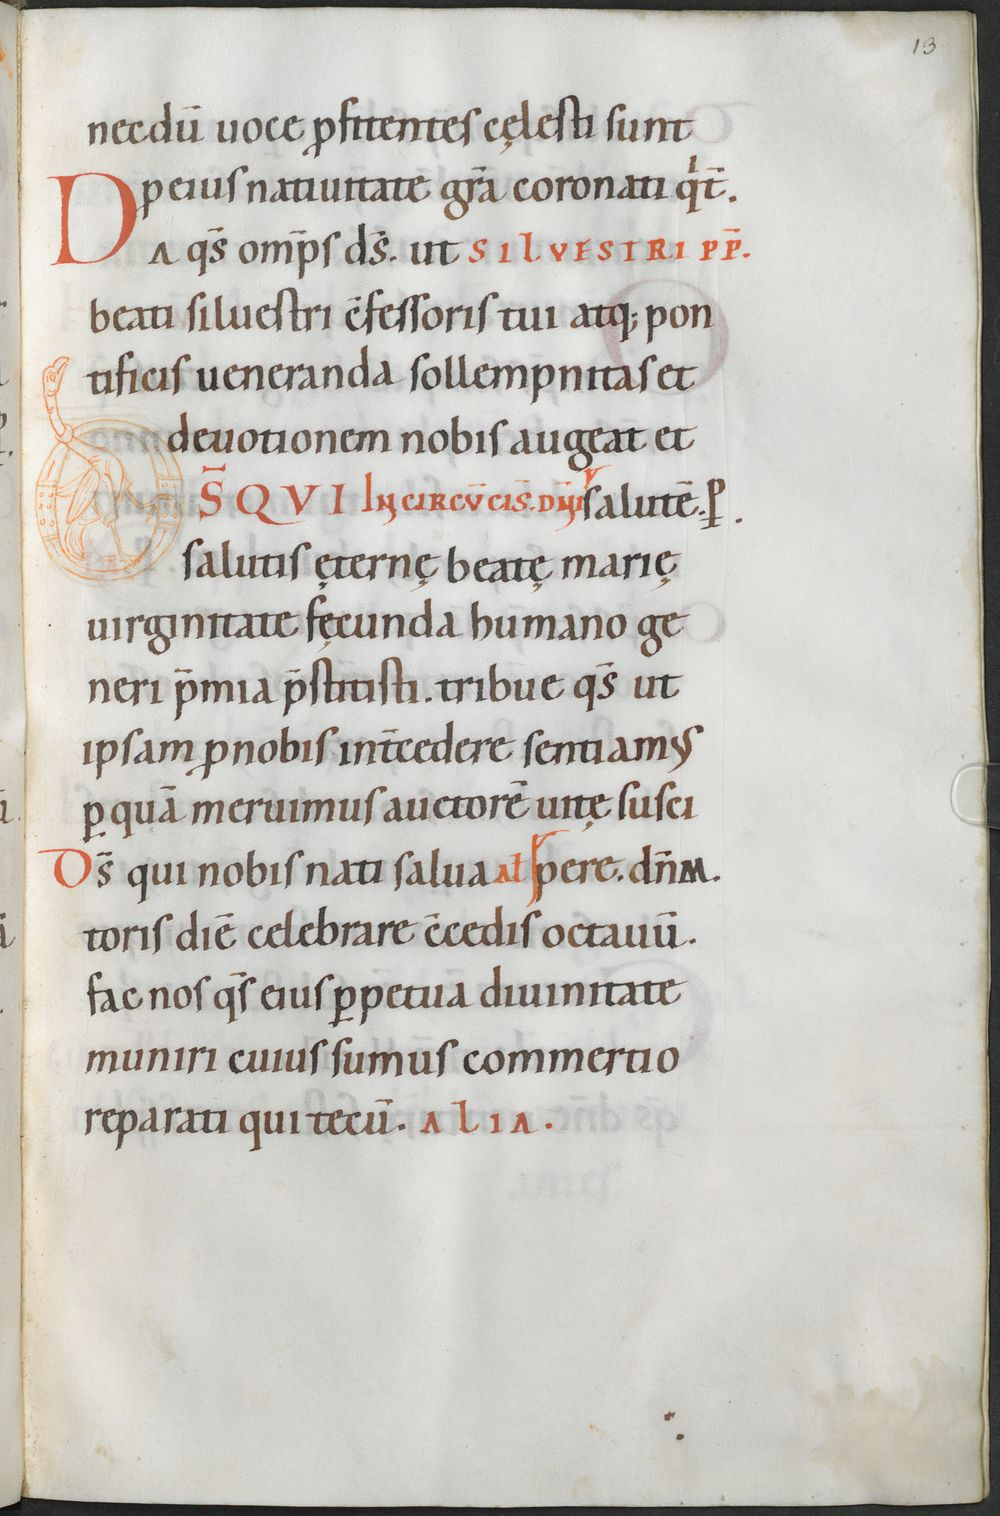 13
necdū uoce ꝓfitentes cęlesti sunt
p eius natiuitate gr̄a coronati q̇t̄.
DA qs̄ om̄ps ds̄. ut SILVESTRI PP̄.
beati siluestri c̄fessoris tui atq; pon
tificis ueneranda sollempnitas et
deuotionem nobis augeat et
DS̄ QVI IN CIRCV̄CIS̄. DN̄I salutē. ꝑ.
salutis ęternę beatę marię
uirginitate fęcunda humano ge
neri p̄mia p̄stitisti. tribue qs̄ ut
ipsam ꝓ nobis int̄cedere sentiamus
ꝑ quā meruimus auctorē uitę susci
Ds̄ qui nobis nati salua AL pere. dn̄m.
toris diē celebrare c̄cedis octauū.
fac nos qs̄ eius ꝑpetua diuinitate
muniri cuius sumus commertio
reparati qui tecū. ALIA.